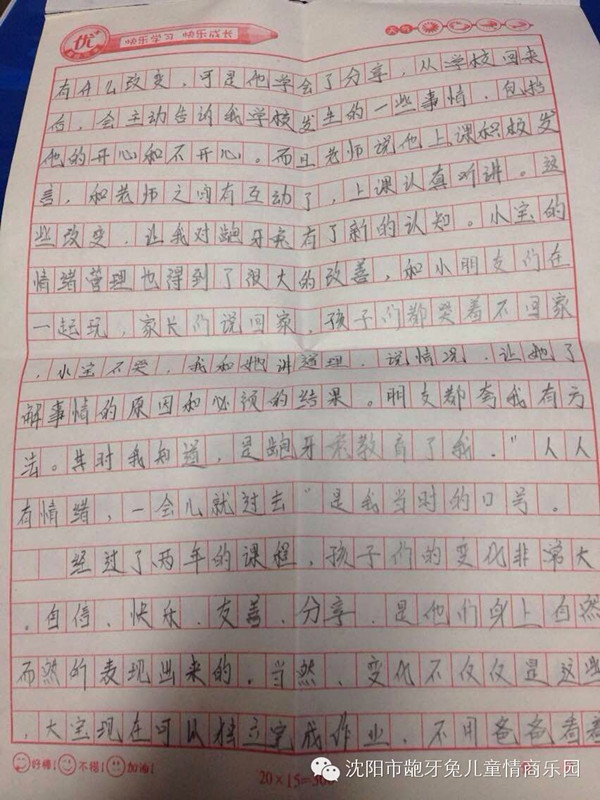 优
快乐学习 快乐成长
天气
有什么改变，可是他学会了分享，从学校回来
后，会主动告诉我学校发生的一些事情，包括
他的开心和不开心。而且老师说他上课积极发
言，和老师之间有互动了，上课认真听讲。这
些改变，让我对龅牙兔有了新的认知。小宝的
情绪管理也得到了很大的改善，和小朋友们在
一起玩，家长们说回家，孩子们都哭着不回家
，小宝不哭，我和她讲道理，说情况，让她了
解事情的原因和必须的结果。朋友都夸我有方
法。其时我知道，是龅牙兔教育了我，"人人
有情绪，一会儿就过去"是我当时的口号。
经过了两年的课程，孩子们的变化非常大
，自信、快乐、友善、分享，是他们身上自然
而然的表现出来的，当然，变化不仅仅是这些
，大宝现在可以独立完成作业，不用爸爸看着
好棒！ 不错！ 加油！
20×15=300
沈阳市龅牙兔儿童情商乐园